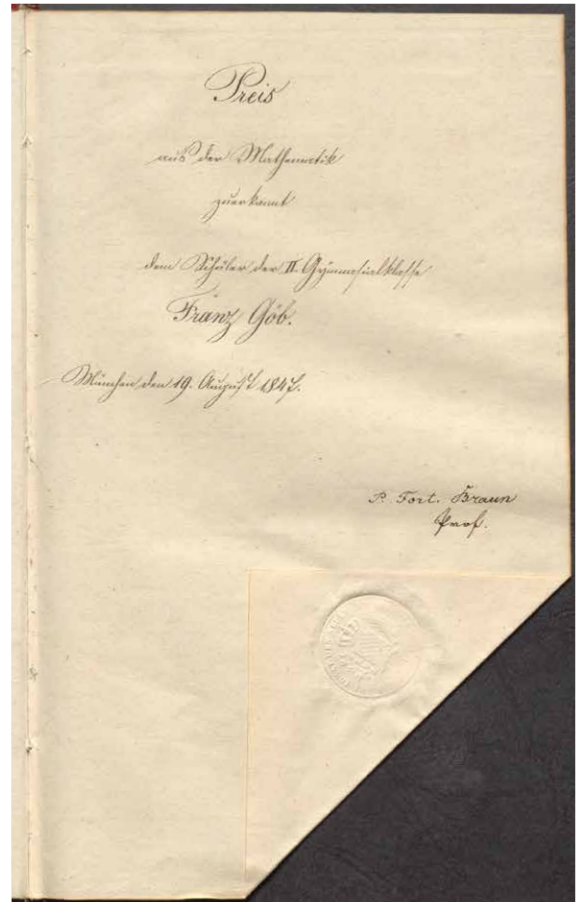 Preis
aus der Mathematik
zuerkannt
dem Schüler der II. Gymnasialklasse
Franz Göb.
München den 19. August 1847.
P. Fort. Braun
Prof.